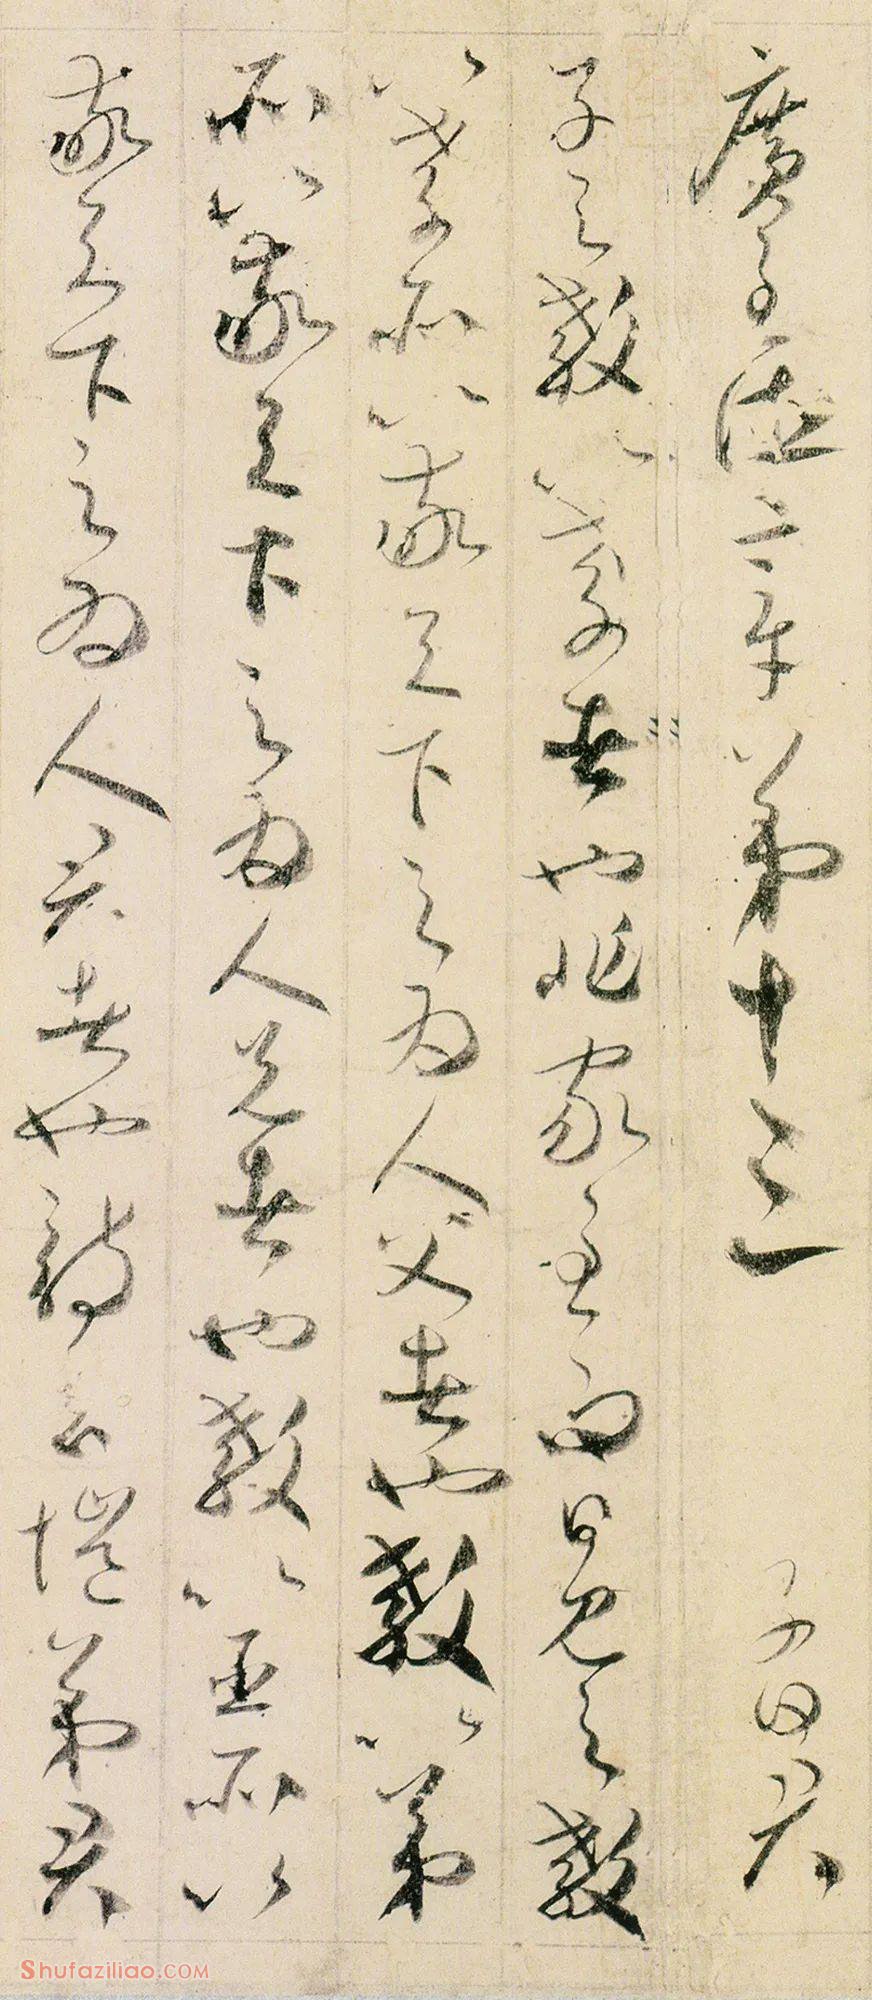 廣至德章第十三 子曰君
子之教以孝者也非家至而日見之教
以孝所以敬天下之為人父者也教以弟
所以敬天下之為人兄者也教以臣所以
敬天下之為人君者也詩云愷弟君
Shufaziliao.COM